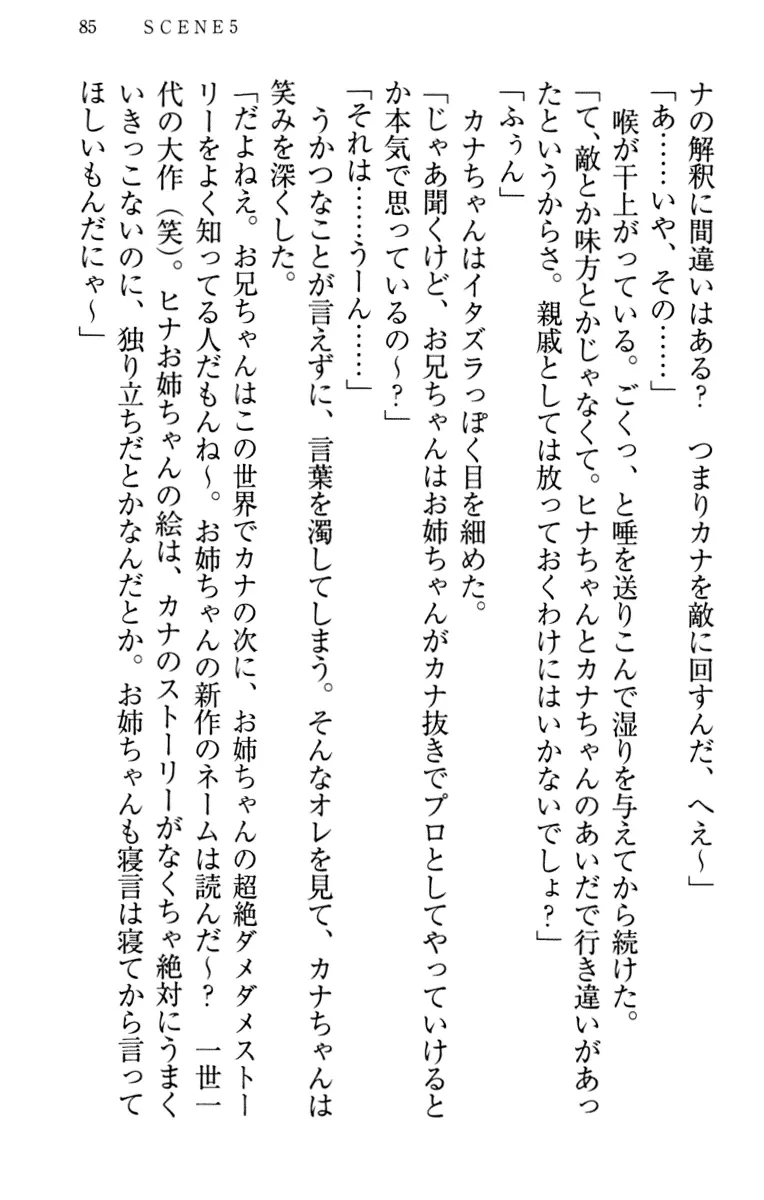 85　SCENE5
ナの解釈に間違いはある？　つまりカナを敵に回すんだ、へえ～」
「あ……いや、その……」
　喉が干上がっている。ごくっ、と唾を送りこんで湿りを与えてから続けた。
「て、敵とか味方とかじゃなくて。ヒナちゃんとカナちゃんのあいだで行き違いがあっ
たというからさ。親戚としては放っておくわけにはいかないでしょ？」
「ふぅん」
　カナちゃんはイタズラっぽく目を細めた。
「じゃあ聞くけど、お兄ちゃんはお姉ちゃんがカナ抜きでプロとしてやっていけると
か本気で思っているの～？」
「それは……うーん……」
　うかつなことが言えずに、言葉を濁してしまう。そんなオレを見て、カナちゃんは
笑みを深くした。
「だよねえ。お兄ちゃんはこの世界でカナの次に、お姉ちゃんの超絶ダメダメストー
リーをよく知ってる人だもんね～。お姉ちゃんの新作のネームは読んだ～？　一世一
代の大作（笑）。ヒナお姉ちゃんの絵は、カナのストーリーがなくちゃ絶対にうまく
いきっこないのに、独り立ちだとかなんだとか。お姉ちゃんも寝言は寝てから言って
ほしいもんだにゃ～」